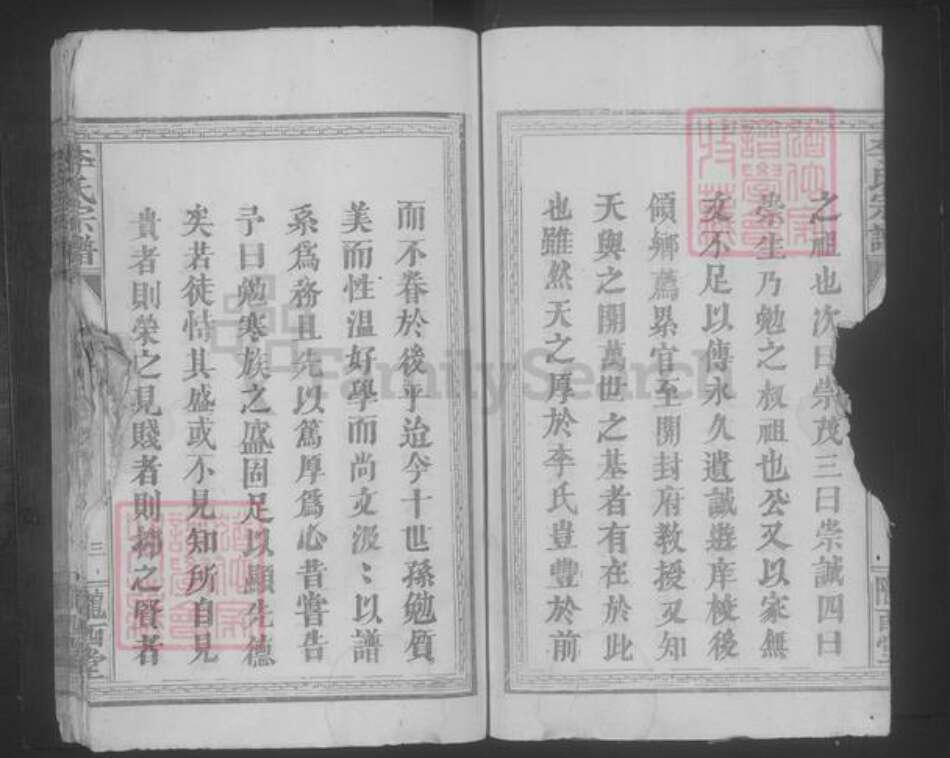 之祖也次曰崇茂三曰崇誠四曰
崇生乃勉之叔祖也公又以家無
文不足以傳永久遺誠遊庠校後
領鄉薦累官至開封府教授又知
天與之開萬世之基者有在於此
也雖然天之厚於李氏豈豐於前
而不眷於後乎迨今十世孫勉質
美而性溫好學而尚文汲〻以譜
系為務且先以篤厚為心昔嘗告
予曰勉寒族之盛固足以顯先德
矣若徒恃其盛或不見知所自見
貴者則榮之見賤者則擲之賢者
李氏宗譜
三
隴西堂
FamilySearch